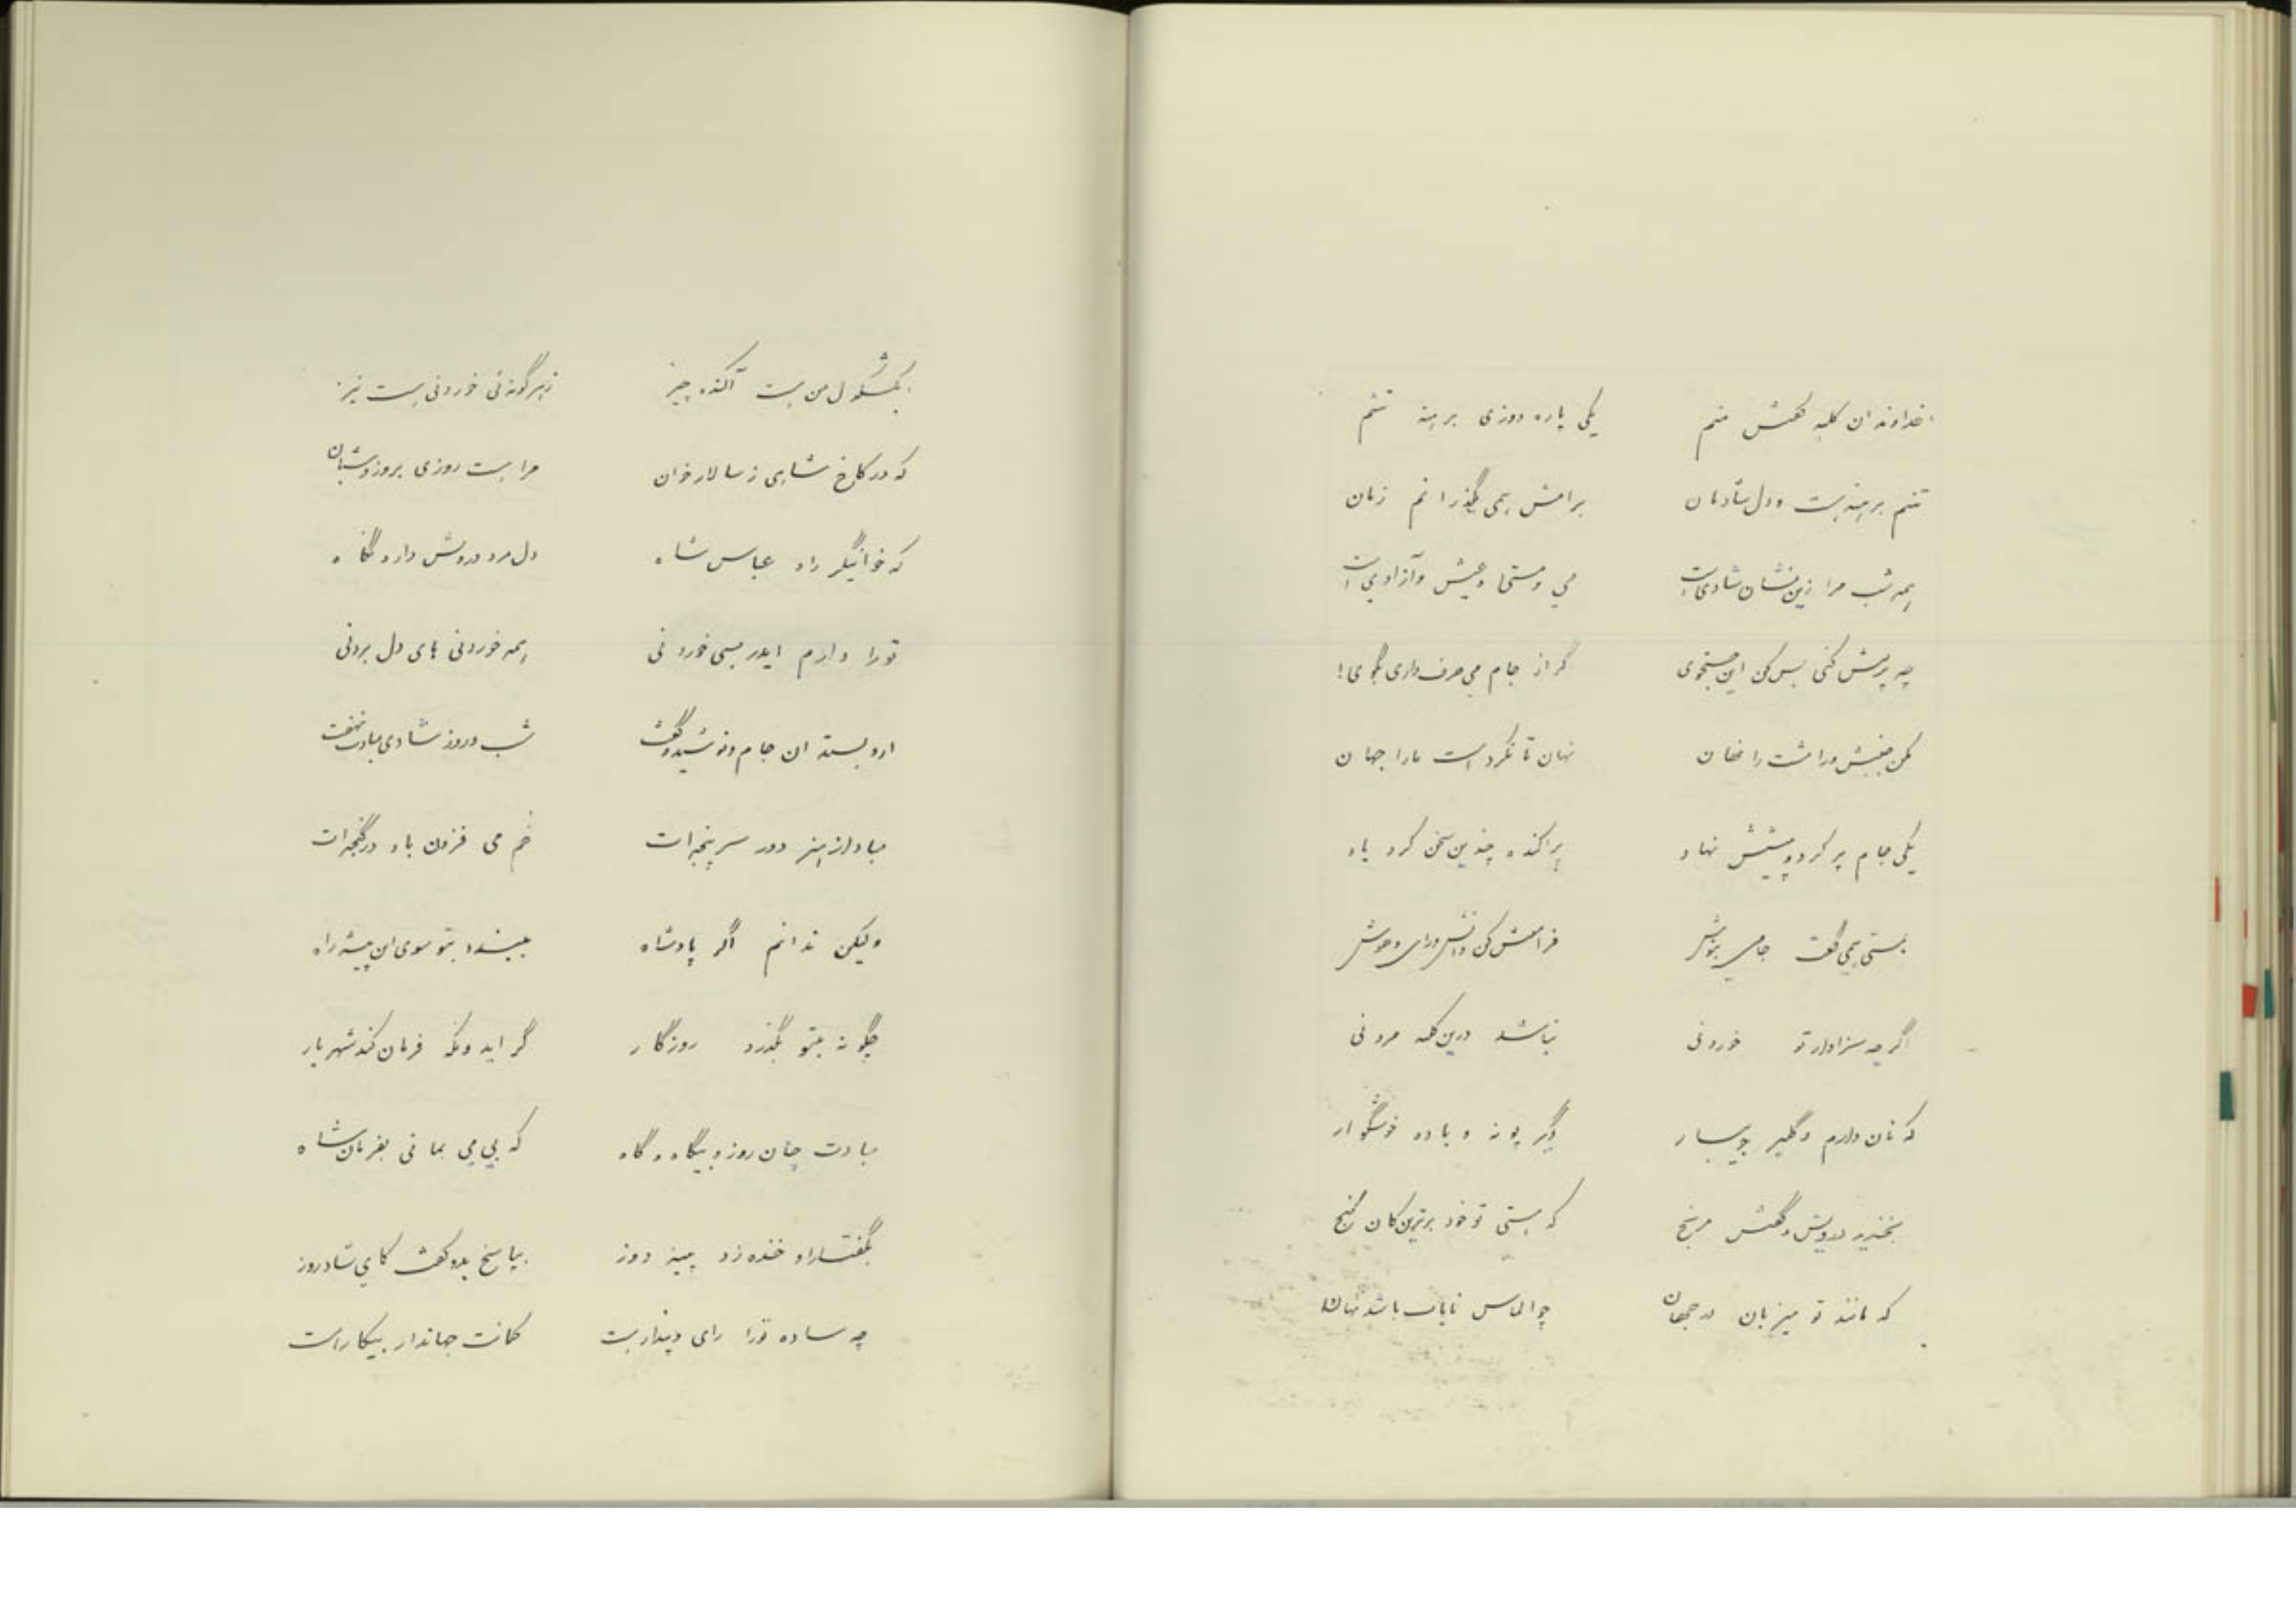 خداوند ان کلبه گفتش منم یکی پاره دوزی برهنه تنم
تنم برهنه است ودل شادمان برامش همی گذرانم زمان
همه شب مرا زین نشان شادی است می ومستی وعیش وآزادی است
چه پرسش کنی بس کن این جستجوی گر از جام می حرف داری بگوی!
نهان تا نکرد است مارا جهان
یکی جام پر کرد و پیشش نهاد پراکنده چندین سخن کرد یاد
بمستی همی گفت جامی بنوش فرامش کن دانش ورای وهوش
اگر چه سزاوار تو خوردنی نباشد درین کلبه مردنی
که نان دارم و پنیر دگر پونه و باده خوشگوار
بخندید درویش و گفتش مرنج که هستی تو خود برترین کان گنج
که مانند تو میزبان در جهان چو الماس نایاب باشد نهان
بکشکول من هست آکنده چیز زهر گونه ئی خوردنی هست نیز
که در کاخ شاهی ز سالار خوان مرا هست روزی بروز وشبان
که خوانیگر راد عباس شاه دل مرد درویش دارد نگاه
تورا دارم ایدر بسی خوردنی همه خوردنی های دل بردنی
ازو بستد ان جام ونوشید وگفت شب وروز شادی مبادت نهفت
مباد از هنر دور سر پنجه ات خم می فزون باد در گنجه ات
ولیکن ندانم اگر پادشاه ببندد بتو سوی این پیشه راه
چگونه بتو بگذرد روزگار گر ایدونکه فرمان کند شهریار
مبادت چنان روز و بیگاه و گاه که بی می بمانی بفرمان شاه
بگفتار او خنده زد پینه دوز بپاسخ بدو گفت کای شاد روز
چه ساده تورا رای وپندار هست گمانت جهاندار بیکار است